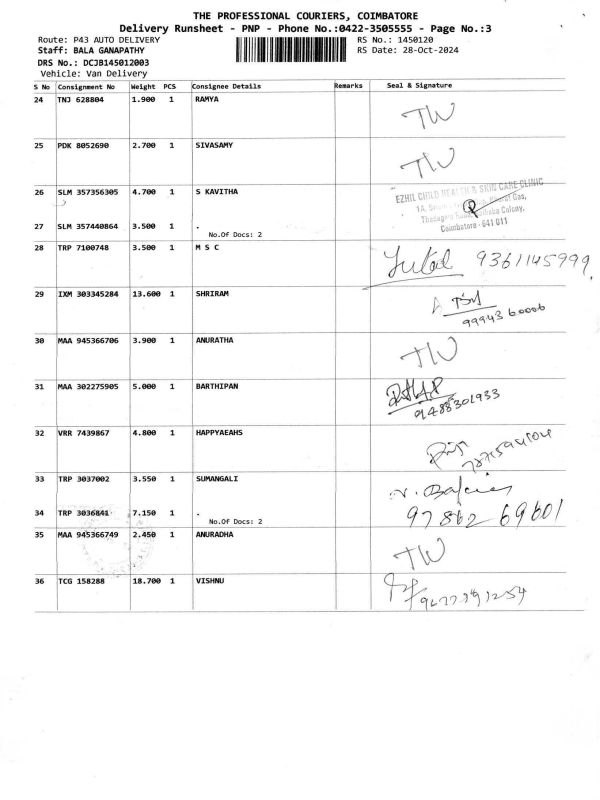 THE PROFESSIONAL COURIERS, COIMBATORE
Delivery Runsheet - PNP - Phone No.:0422-3505555 - Page No.:3
Route: P43 AUTO DELIVERY RS No.: 1450120
Staff: BALA GANAPATHY RS Date: 28-Oct-2024
DRS No.: DCJB145012003
Vehicle: Van Delivery
S No Consignment No Weight PCS Consignee Details Remarks Seal & Signature
24 TNJ 628804 1.900 1 RAMYA
TW
25 PDK 8052690 2.700 1 SIVASAMY
TW
26 SLM 357356305 4.700 1 S KAVITHA
EZHIL CHILD HEALTH & SKIN CARE CLINIC
1A, Bharat Gas,
Colony,
Coimbatore - 641 011
27 SLM 357440864 3.500 1 .
No.Of Docs: 2
28 TRP 7100748 3.500 1 M S C
9361145999
29 IXM 303345284 13.600 1 SHRIRAM
9994360006
30 MAA 945366706 3.900 1 ANURATHA
TW
31 MAA 302275905 5.000 1 BARTHIPAN
9488301933
32 VRR 7439867 4.800 1 HAPPYAEAHS
33 TRP 3037002 3.550 1 SUMANGALI
34 TRP 3036841 7.150 1 .
97862 69601
No.Of Docs: 2
35 MAA 945366749 2.450 1 ANURADHA
TW
36 TCG 158288 18.700 1 VISHNU